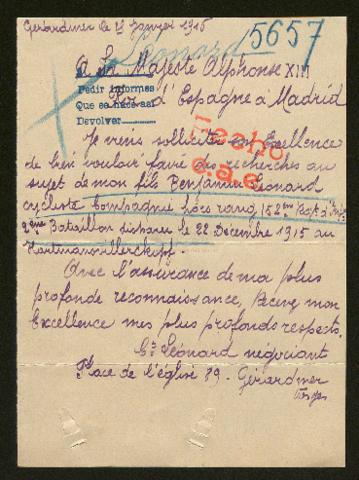 Gérardmer le 21 Janvier 1916
Leonard 5657
A Sa Majesté Alphonse XIII
Pedir informes
Roi d'Espagne à Madrid
Que se hace así
Devolver
Hecho
Je viens sollicite son Excellence
de bien vouloir faire des recherches au
sujet de mon fils Benjamin Léonard
cycliste Compagnie hors rang 152ème Regt d'Inf
2ème Bataillon disparu le 22 Décembre 1915 au
Hartmannsvillerckopf.
Avec l'assurance de ma plus
profonde reconnaissance, Recevez mon
Excellence mes plus profonds respects.
Léonard négociant
Place de l'église 39. Gérardmer
Vosges